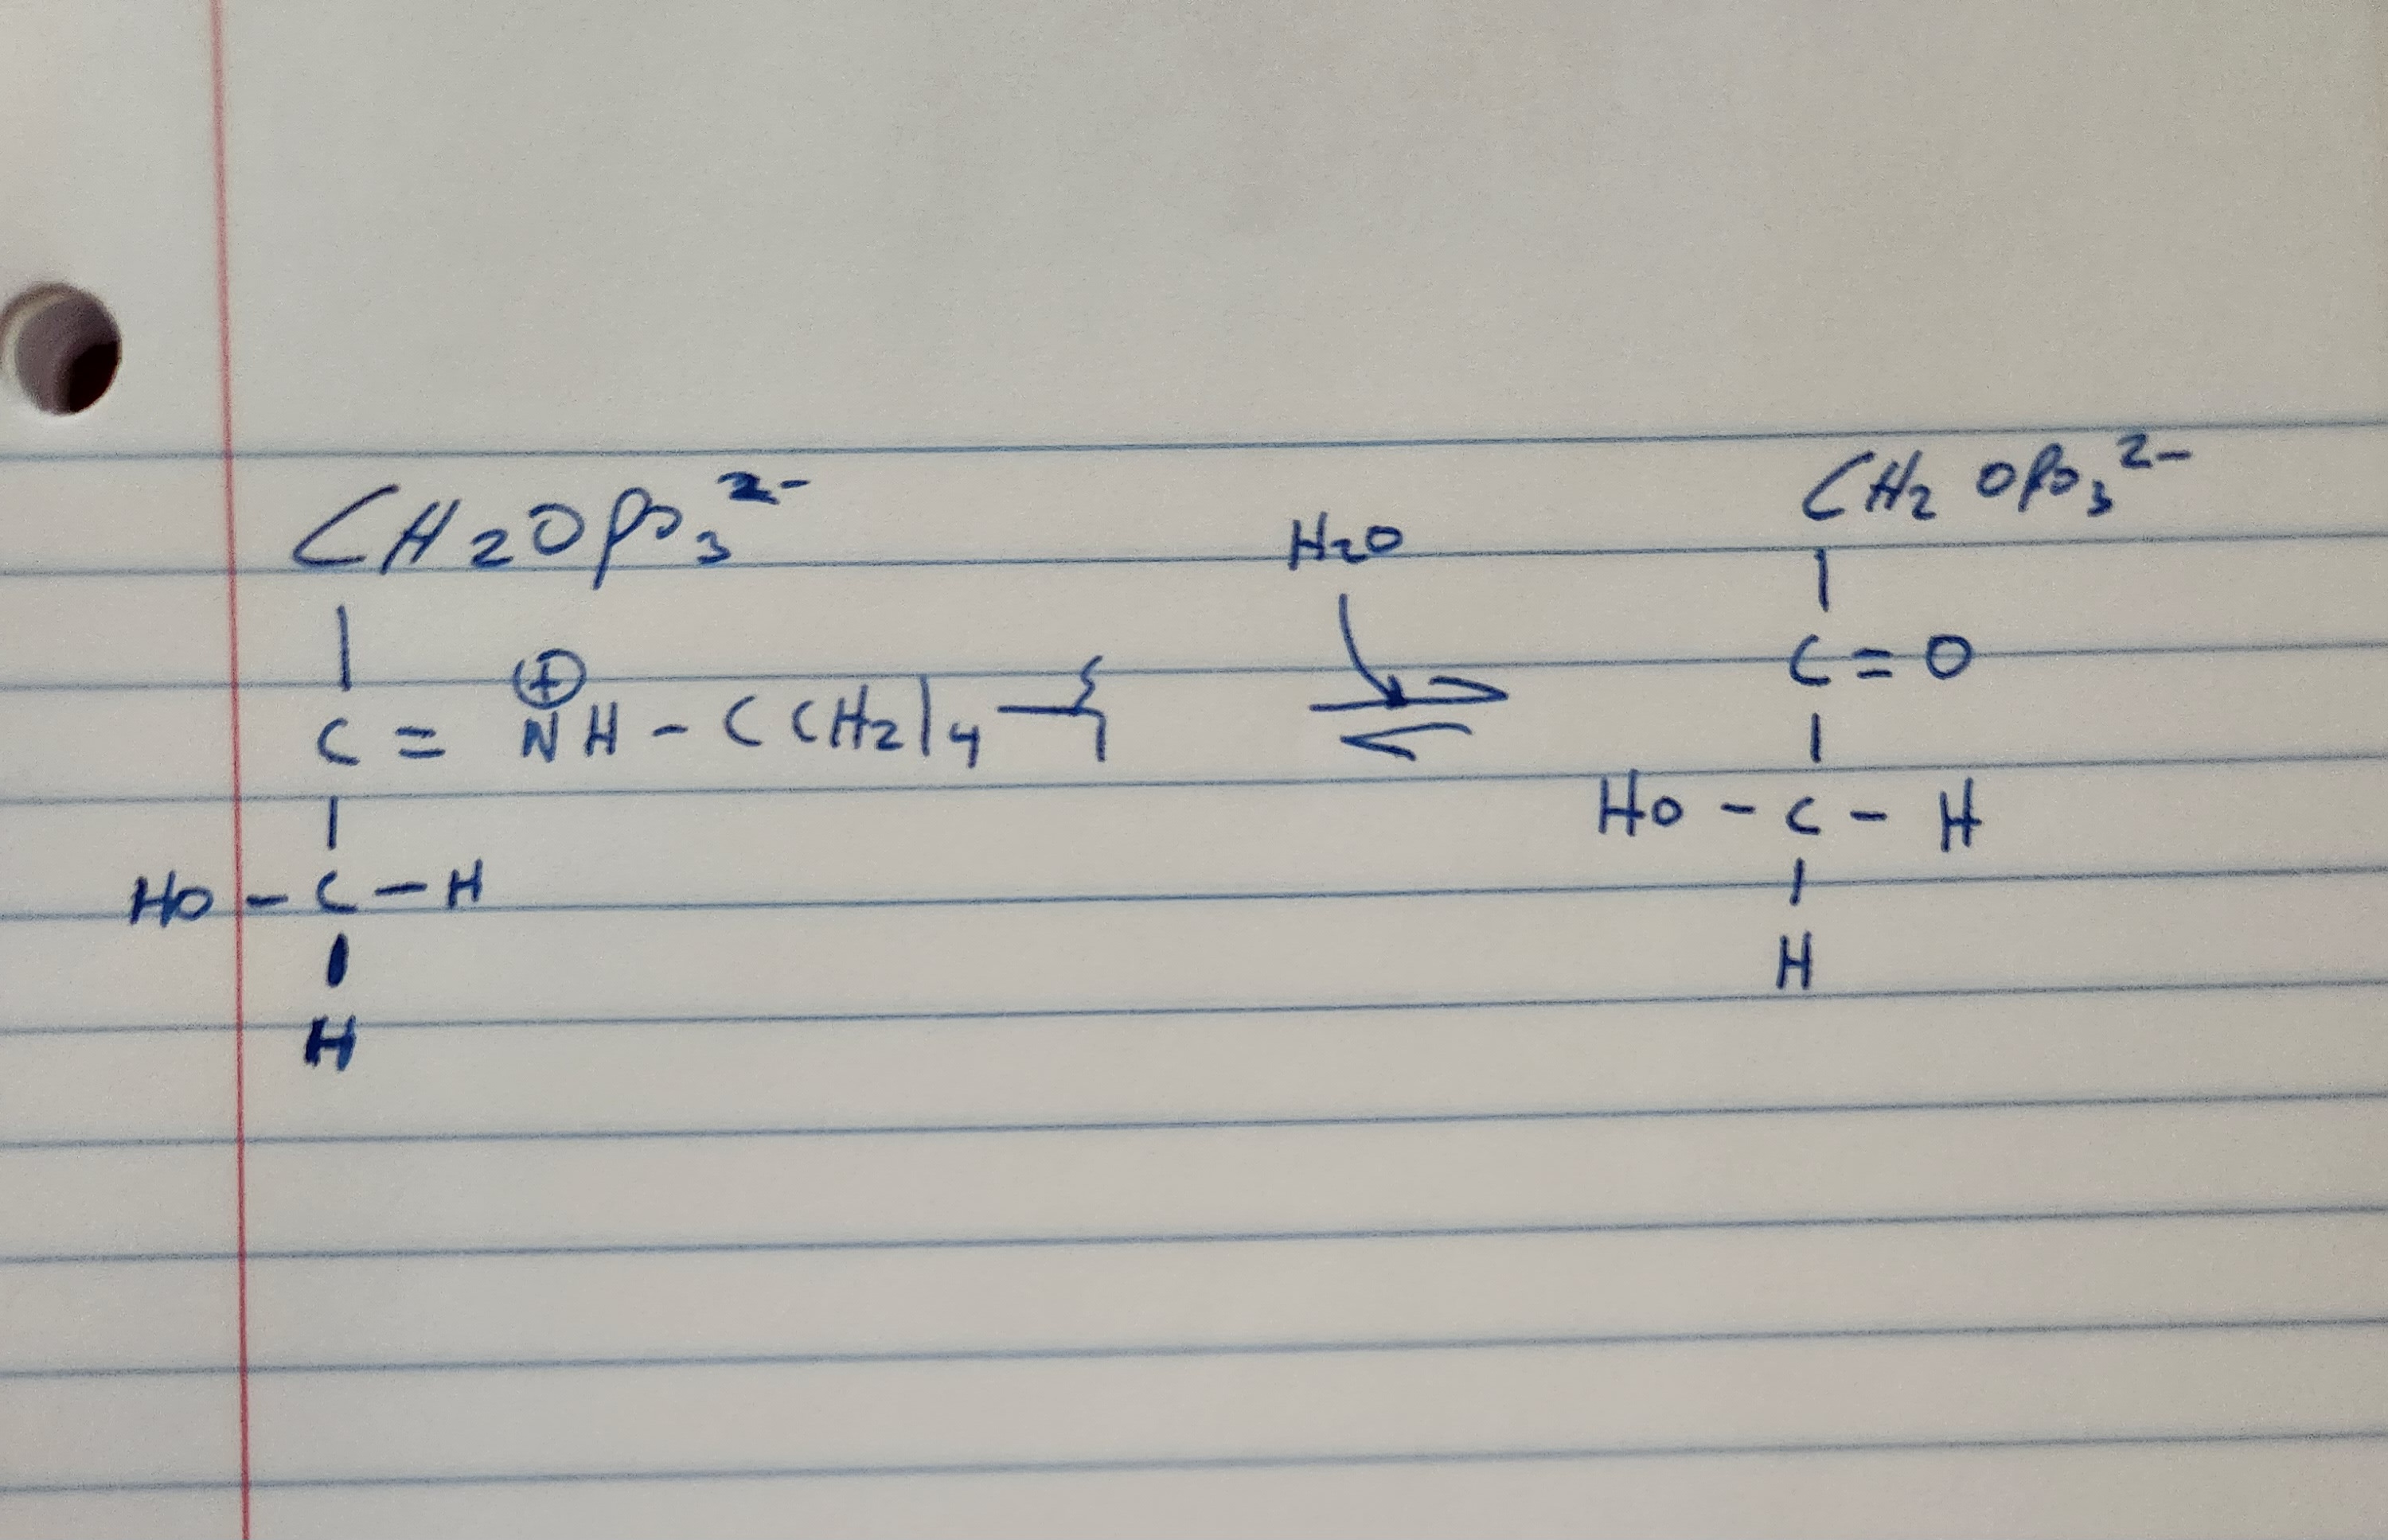 CH2OPO3 2-
|
C = NH - (CH2)4
⊕
|
HO - C - H
|
H
H2O
CH2 OPO3 2-
|
C = O
|
HO - C - H
|
H